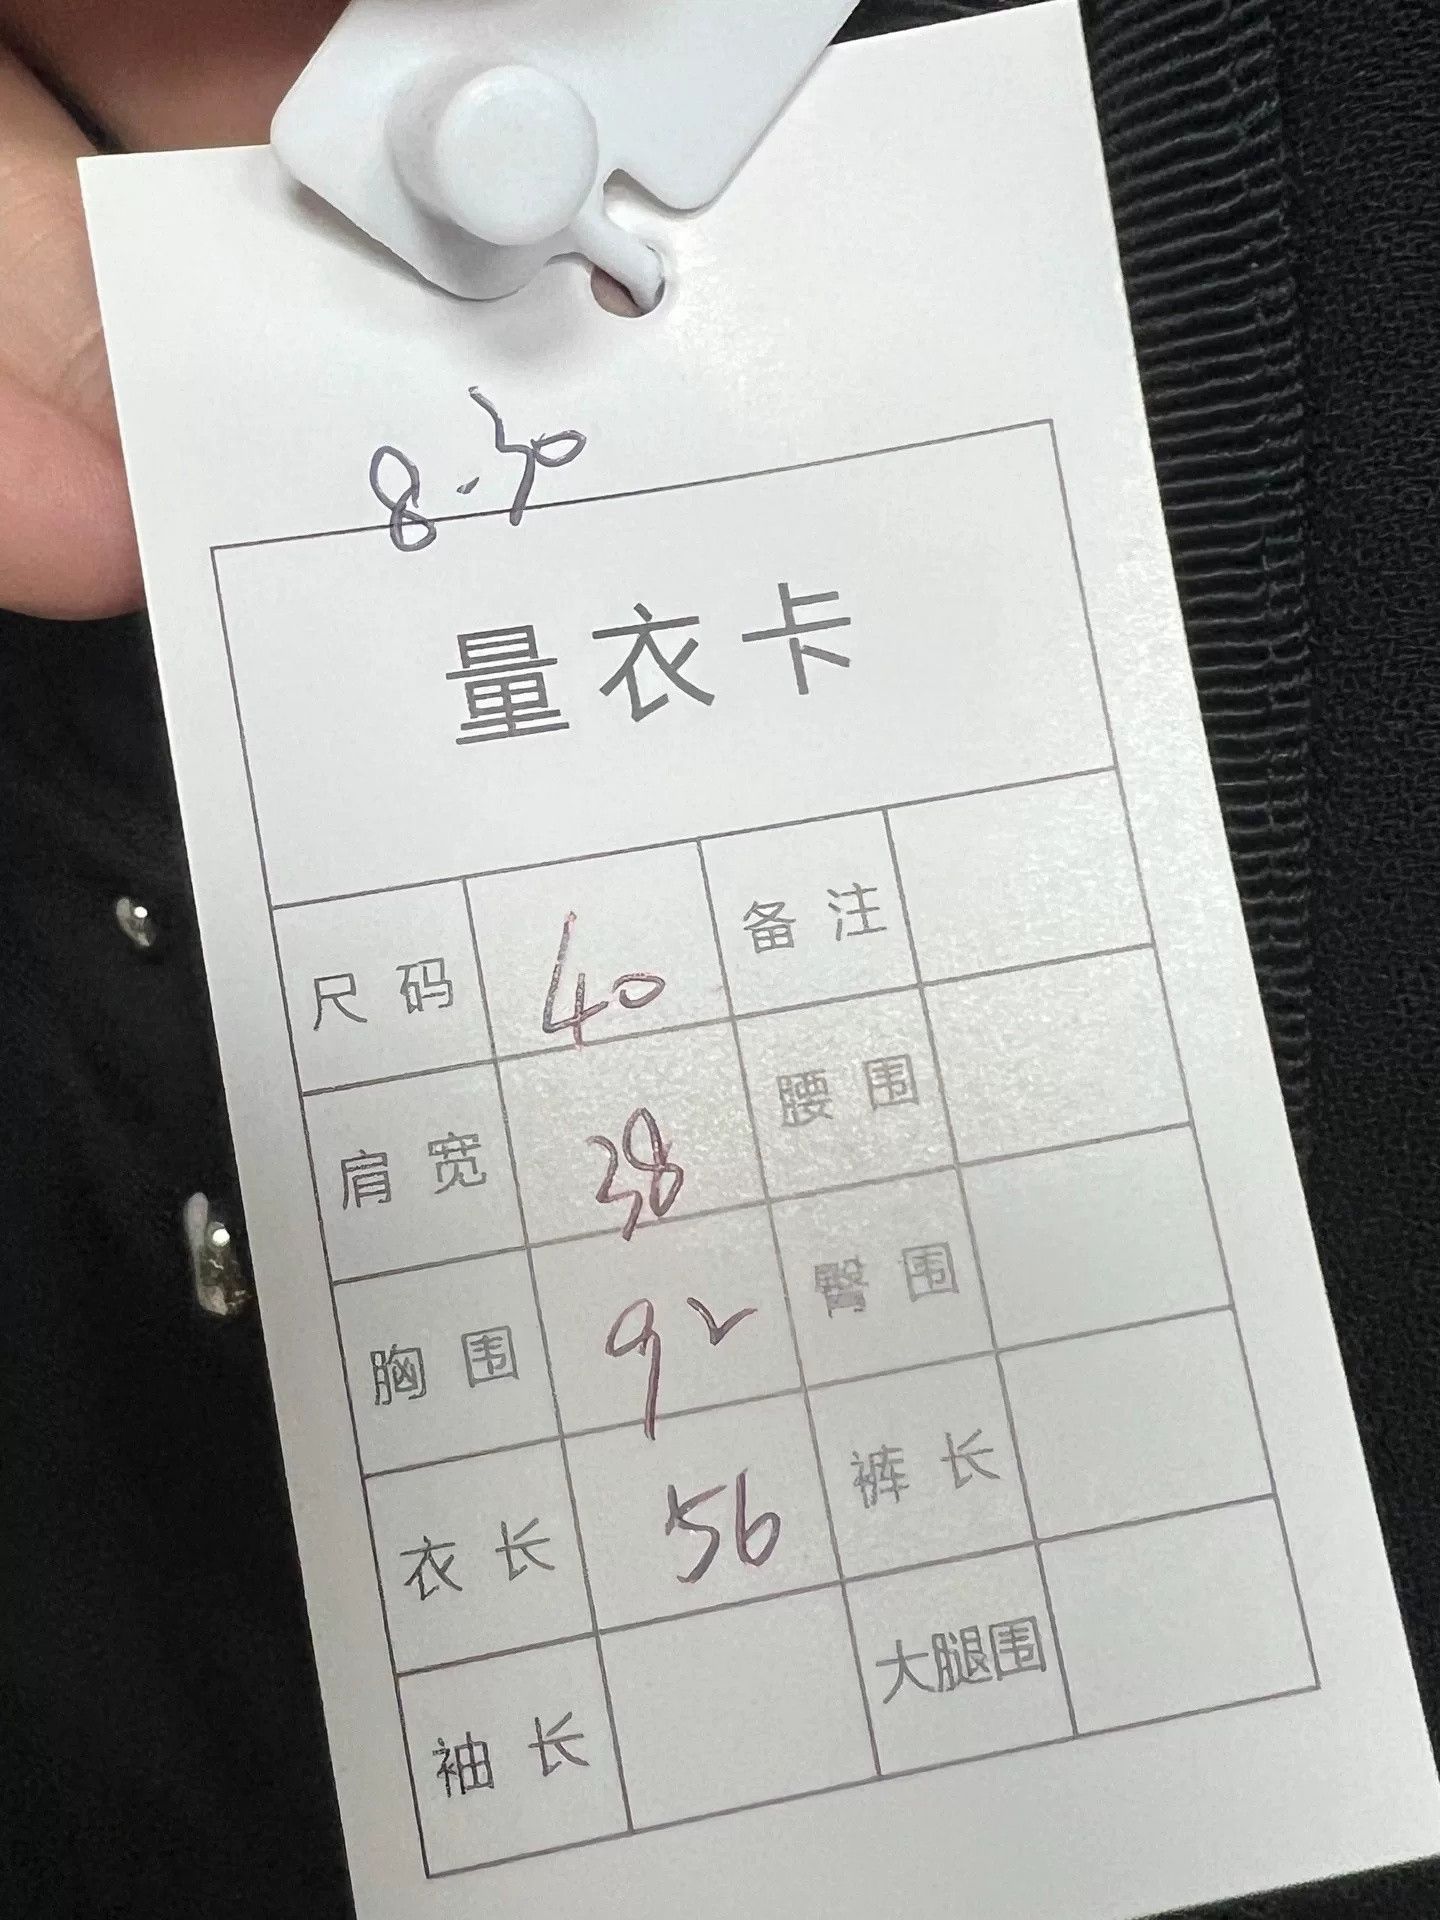 8.30
量衣卡
尺码 40 备注
肩宽 38 腰围
胸围 92 臀围
衣长 56 裤长
袖长 大腿围